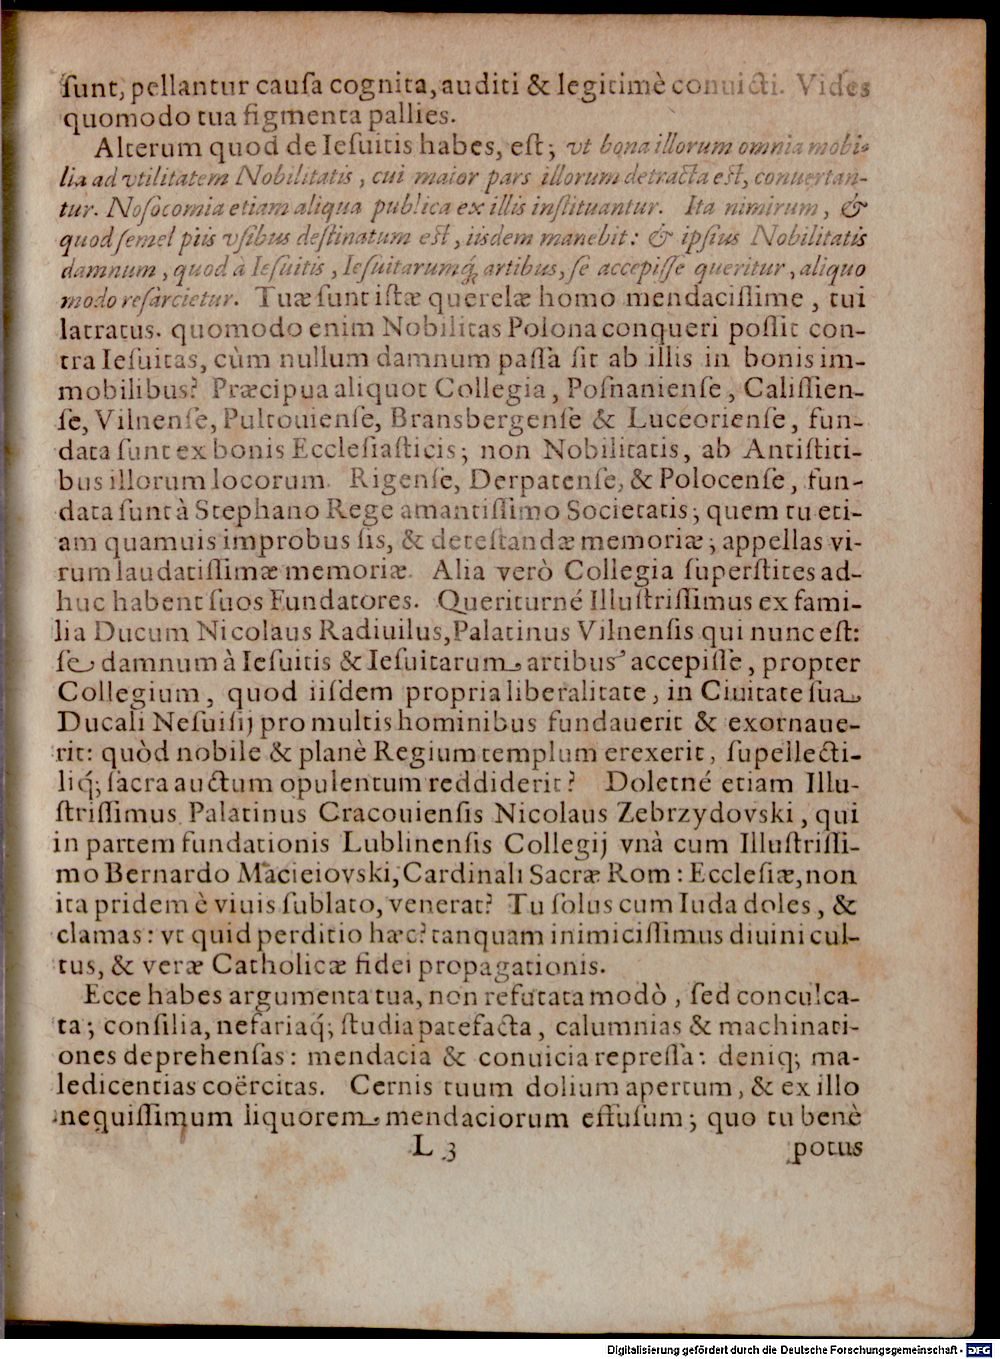 ſunt, pellantur cauſa cognita, auditi & legitimè conuicti. Vides
quomodo tua figmenta pallies.
Alterum quod de Ieſuitis habes, eſt; vt bona illorum omnia mobi-
lia ad vtilitatem Nobilitatis, cui maior pars illorum detracta eſt, conuertan-
tur. Noſocomia etiam aliqua publica ex illis inſtituantur. Ita nimirum, &
quod ſemel piis vſibus deſtinatum eſt, iisdem manebit: & ipſius Nobilitatis
damnum, quod à Ieſuitis, Ieſuitarumq́; artibus, ſe accepiſſe queritur, aliquo
modo reſarcietur. Tuæ ſunt iſtæ querelæ homo mendaciſſime, tui
latratus. quomodo enim Nobilitas Polona conqueri poſſit con-
tra Ieſuitas, cùm nullum damnum paſſa ſit ab illis in bonis im-
mobilibus? Præcipua aliquot Collegia, Poſnanienſe, Caliſſien-
ſe, Vilnenſe, Pultouienſe, Bransbergenſe & Luceorienſe, fun-
data ſunt ex bonis Eccleſiaſticis; non Nobilitatis, ab Antiſtiti-
bus illorum locorum. Rigenſe, Derpatenſe, & Polocenſe, fun-
data ſunt à Stephano Rege amantiſſimo Societatis; quem tu eti-
am quamuis improbus ſis, & deteſtandæ memoriæ; appellas vi-
rum laudatiſſimæ memoriæ. Alia verò Collegia ſuperſtites ad-
huc habent ſuos Fundatores. Queriturné Illuſtriſſimus ex fami-
lia Ducum Nicolaus Radiuilus, Palatinus Vilnenſis qui nunc eſt:
ſe damnum à Ieſuitis & Ieſuitarum artibus accepiſſe, propter
Collegium, quod iiſdem propria liberalitate, in Ciuitate ſua
Ducali Neſuiſij pro multis hominibus fundauerit & exornaue-
rit: quòd nobile & planè Regium templum erexerit, ſupellecti-
liq́; ſacra auctum opulentum reddiderit? Doletné etiam Illu-
ſtriſſimus Palatinus Cracouienſis Nicolaus Zebrzydovski, qui
in partem fundationis Lublinenſis Collegij vnà cum Illuſtriſſi-
mo Bernardo Macieiovski, Cardinali Sacræ Rom: Eccleſiæ, non
ita pridem è viuis ſublato, venerat? Tu ſolus cum Iuda doles, &
clamas: vt quid perditio hæc? tanquam inimiciſſimus diuini cul-
tus, & veræ Catholicæ fidei propagationis.
Ecce habes argumenta tua, non refutata modò, ſed conculca-
ta; conſilia, nefariaq́; ſtudia patefacta, calumnias & machinati-
ones deprehenſas: mendacia & conuicia repreſſa: deniq; ma-
ledicentias coërcitas. Cernis tuum dolium apertum, & ex illo
nequiſſimum liquorem mendaciorum effuſum; quo tu benè
L 3 potus
Digitalisierung gefördert durch die Deutsche Forschungsgemeinschaft - DFG